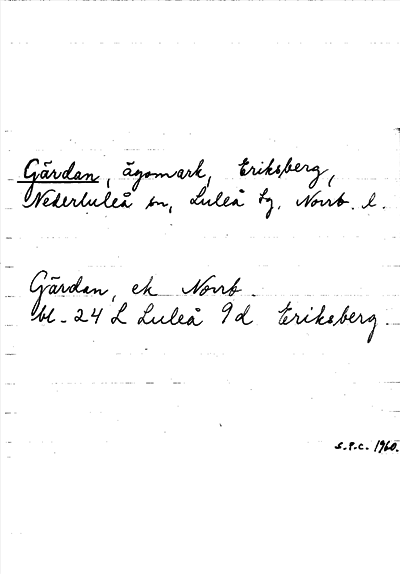 Gärdan, ägomark, Eriksberg,
Nederluleå sn, Luleå tg, Norrb. l.
Gärdan, ek Norrb.
bl. 24 L Luleå 9d Eriksberg.
S.P.C. 1960.